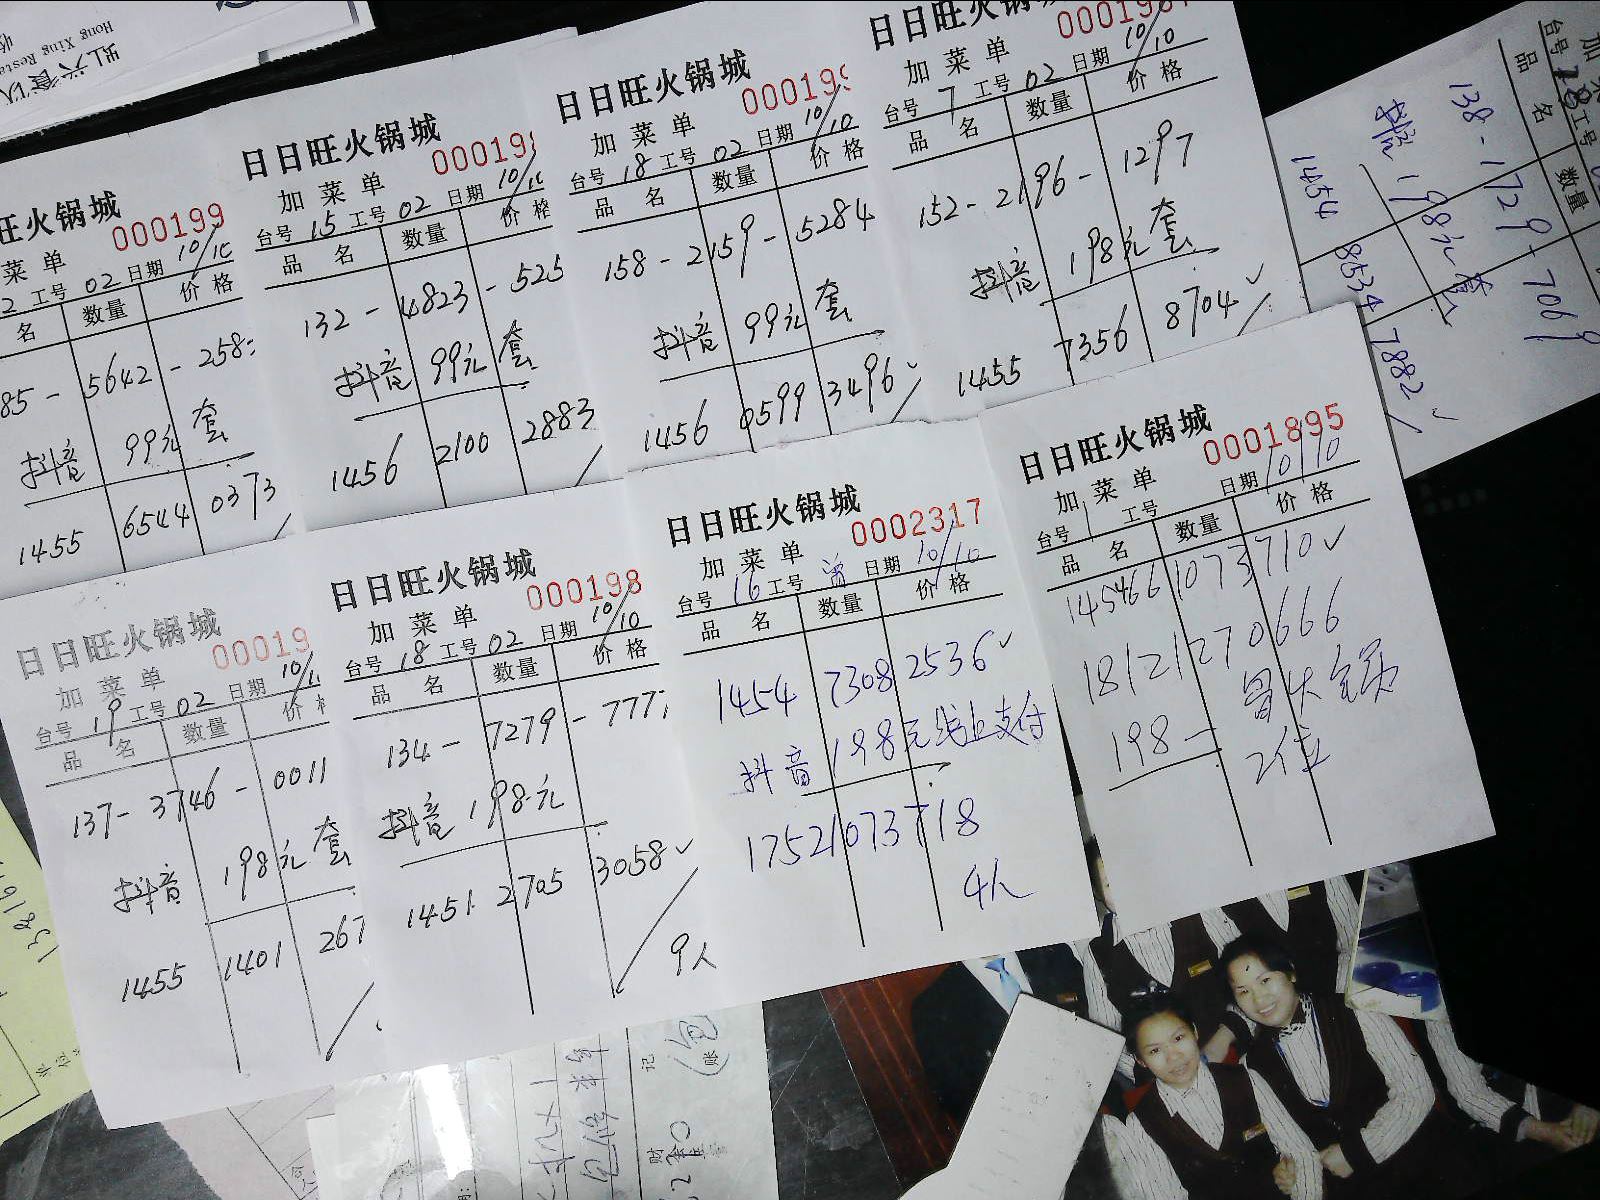 Hong Xing Resta
旺火锅城
000199
菜单
2 工号 02 日期 10/10
名 数量 价格
85 - 5642 - 258
抖音 99元 套
1455 6544 0373
日日旺火锅城
加菜单
台号 15 工号 02 日期
品名 数量 价格
132 - 4823 - 525
抖音 99元 套
1456 2100 2883
日日旺火锅城
加菜单
台号 18 工号 02 日期 10/10
品名 数量 价格
158 - 2159 - 5284
抖音 99元 套
1456 0599 3496
日日旺火锅城
加菜单
台号 7 工号 02 日期 10/10
品名 数量 价格
152 - 2196 - 1297
抖音 198元 套
1455 7356 8704
台号 18 工号
品名 数量
138 - 1729 - 7069
抖音 198元套
1454 8534 7882
日日旺火锅城
00019
加菜单
台号 19 工号 02 日期
品名 数量 价
137 - 3746 - 0011
抖音 198元 套
1455 1401 267
日日旺火锅城
000198
加菜单
台号 18 工号 02 日期 10/10
品名 数量 价格
134 - 7279 - 777
抖音 198元
1451 2705 3058
9人
日日旺火锅城
0002317
加菜单
台号 16 工号 日期 10/10
品名 数量 价格
1454 7308 2536
抖音 198元线上支付
17521073718
4人
日日旺火锅城
0001895
加菜单
台号 1 工号 日期 10/10
品名 数量 价格
145466 1073710
18121270666
198 -
2位